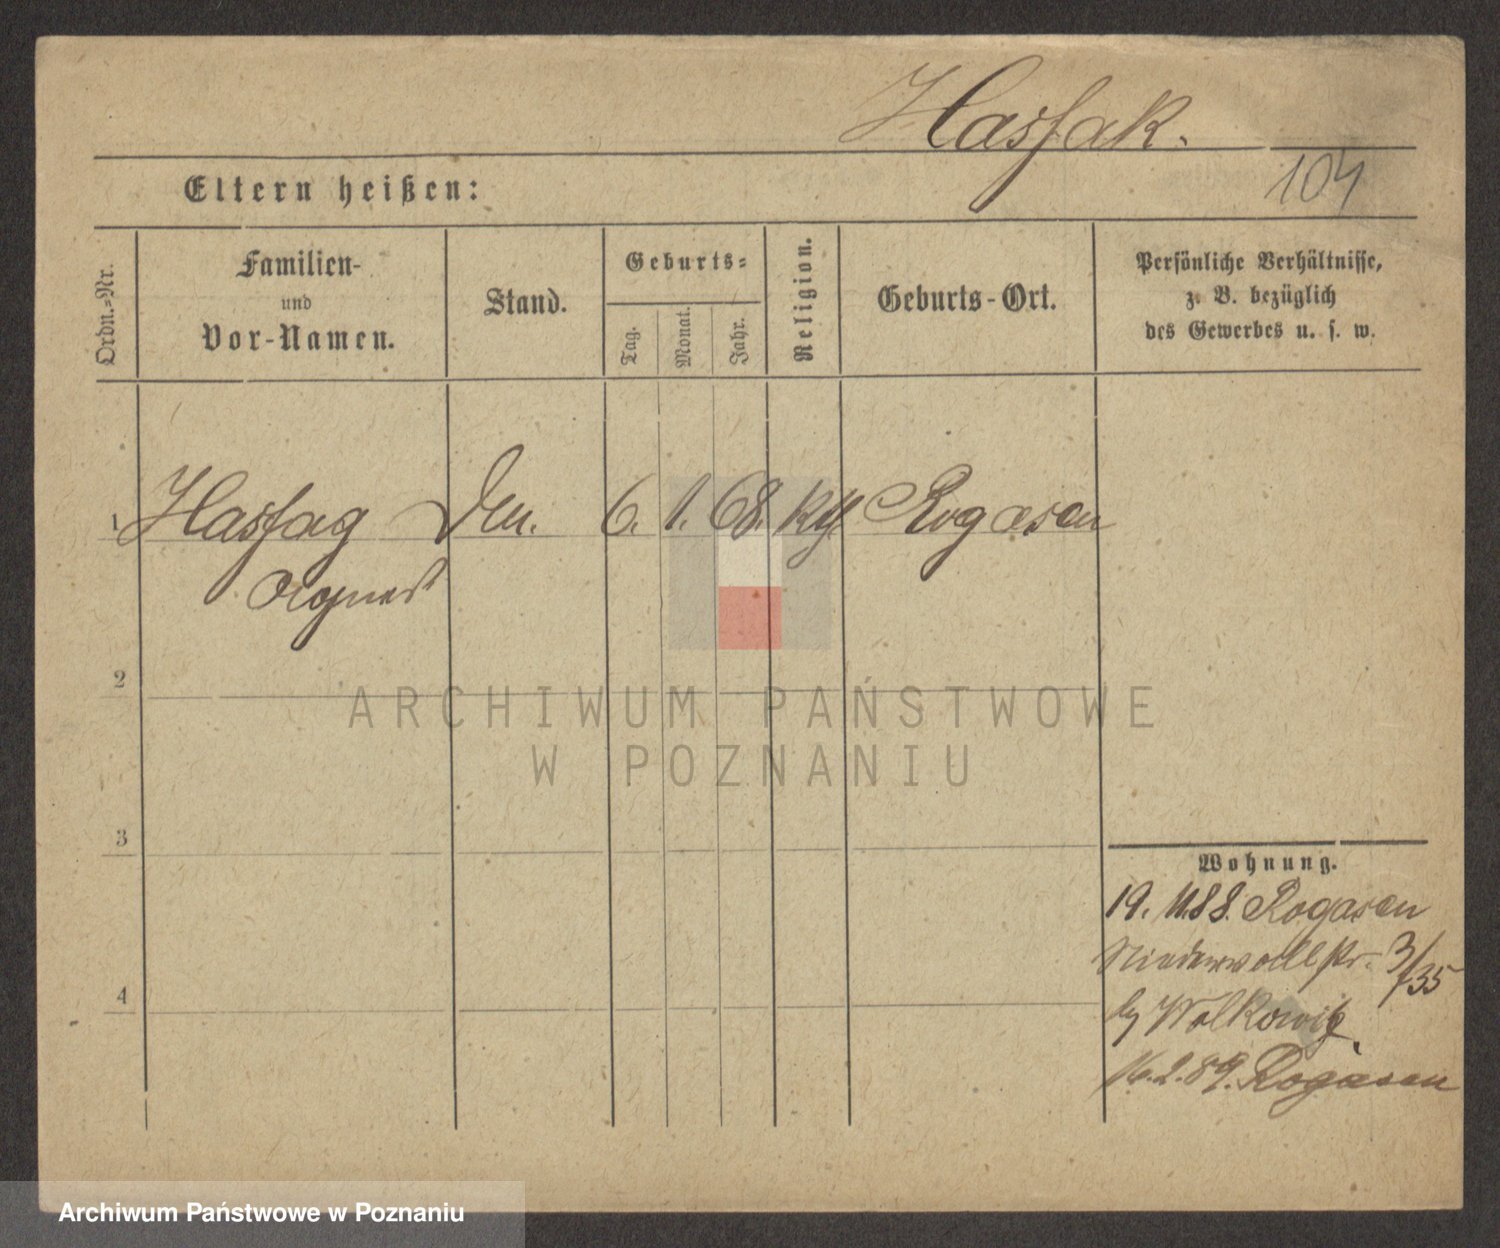 Hasfak.
104
Eltern heißen:
Ordn.-Nr.
Familien-
und
Vor-Namen.
Stand.
Geburts-
Tag.
Monat.
Jahr.
Religion.
Geburts-Ort.
Persönliche Verhältnisse,
z. B. bezüglich
des Gewerbes u. s. w.
1 Hasfag 6. 1. 68. Rogasen
Agnes
2
3
4
ARCHIWUM PAŃSTWOWE
W POZNANIU
Wohnung.
19. 11.88. Rogasen
3/735
Wolkowitz
16.2.89. Rogasen
Archiwum Państwowe w Poznaniu